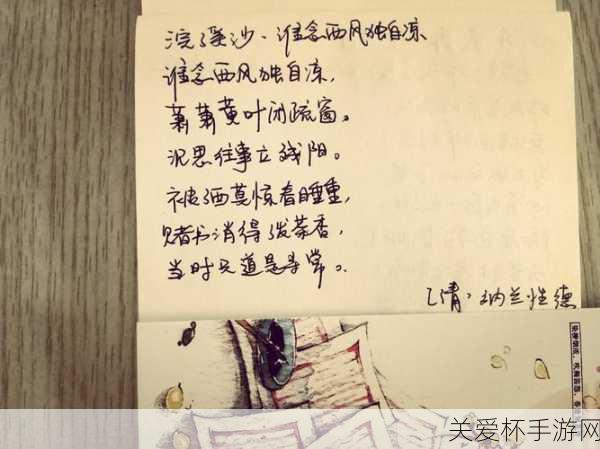 浣溪沙·谁念西风独自凉
谁念西风独自凉，
萧萧黄叶闭疏窗。
沉思往事立残阳。
被酒莫惊春睡重，
赌书消得泼茶香，
当时只道是寻常。
清·纳兰性德
关爱杯手游网